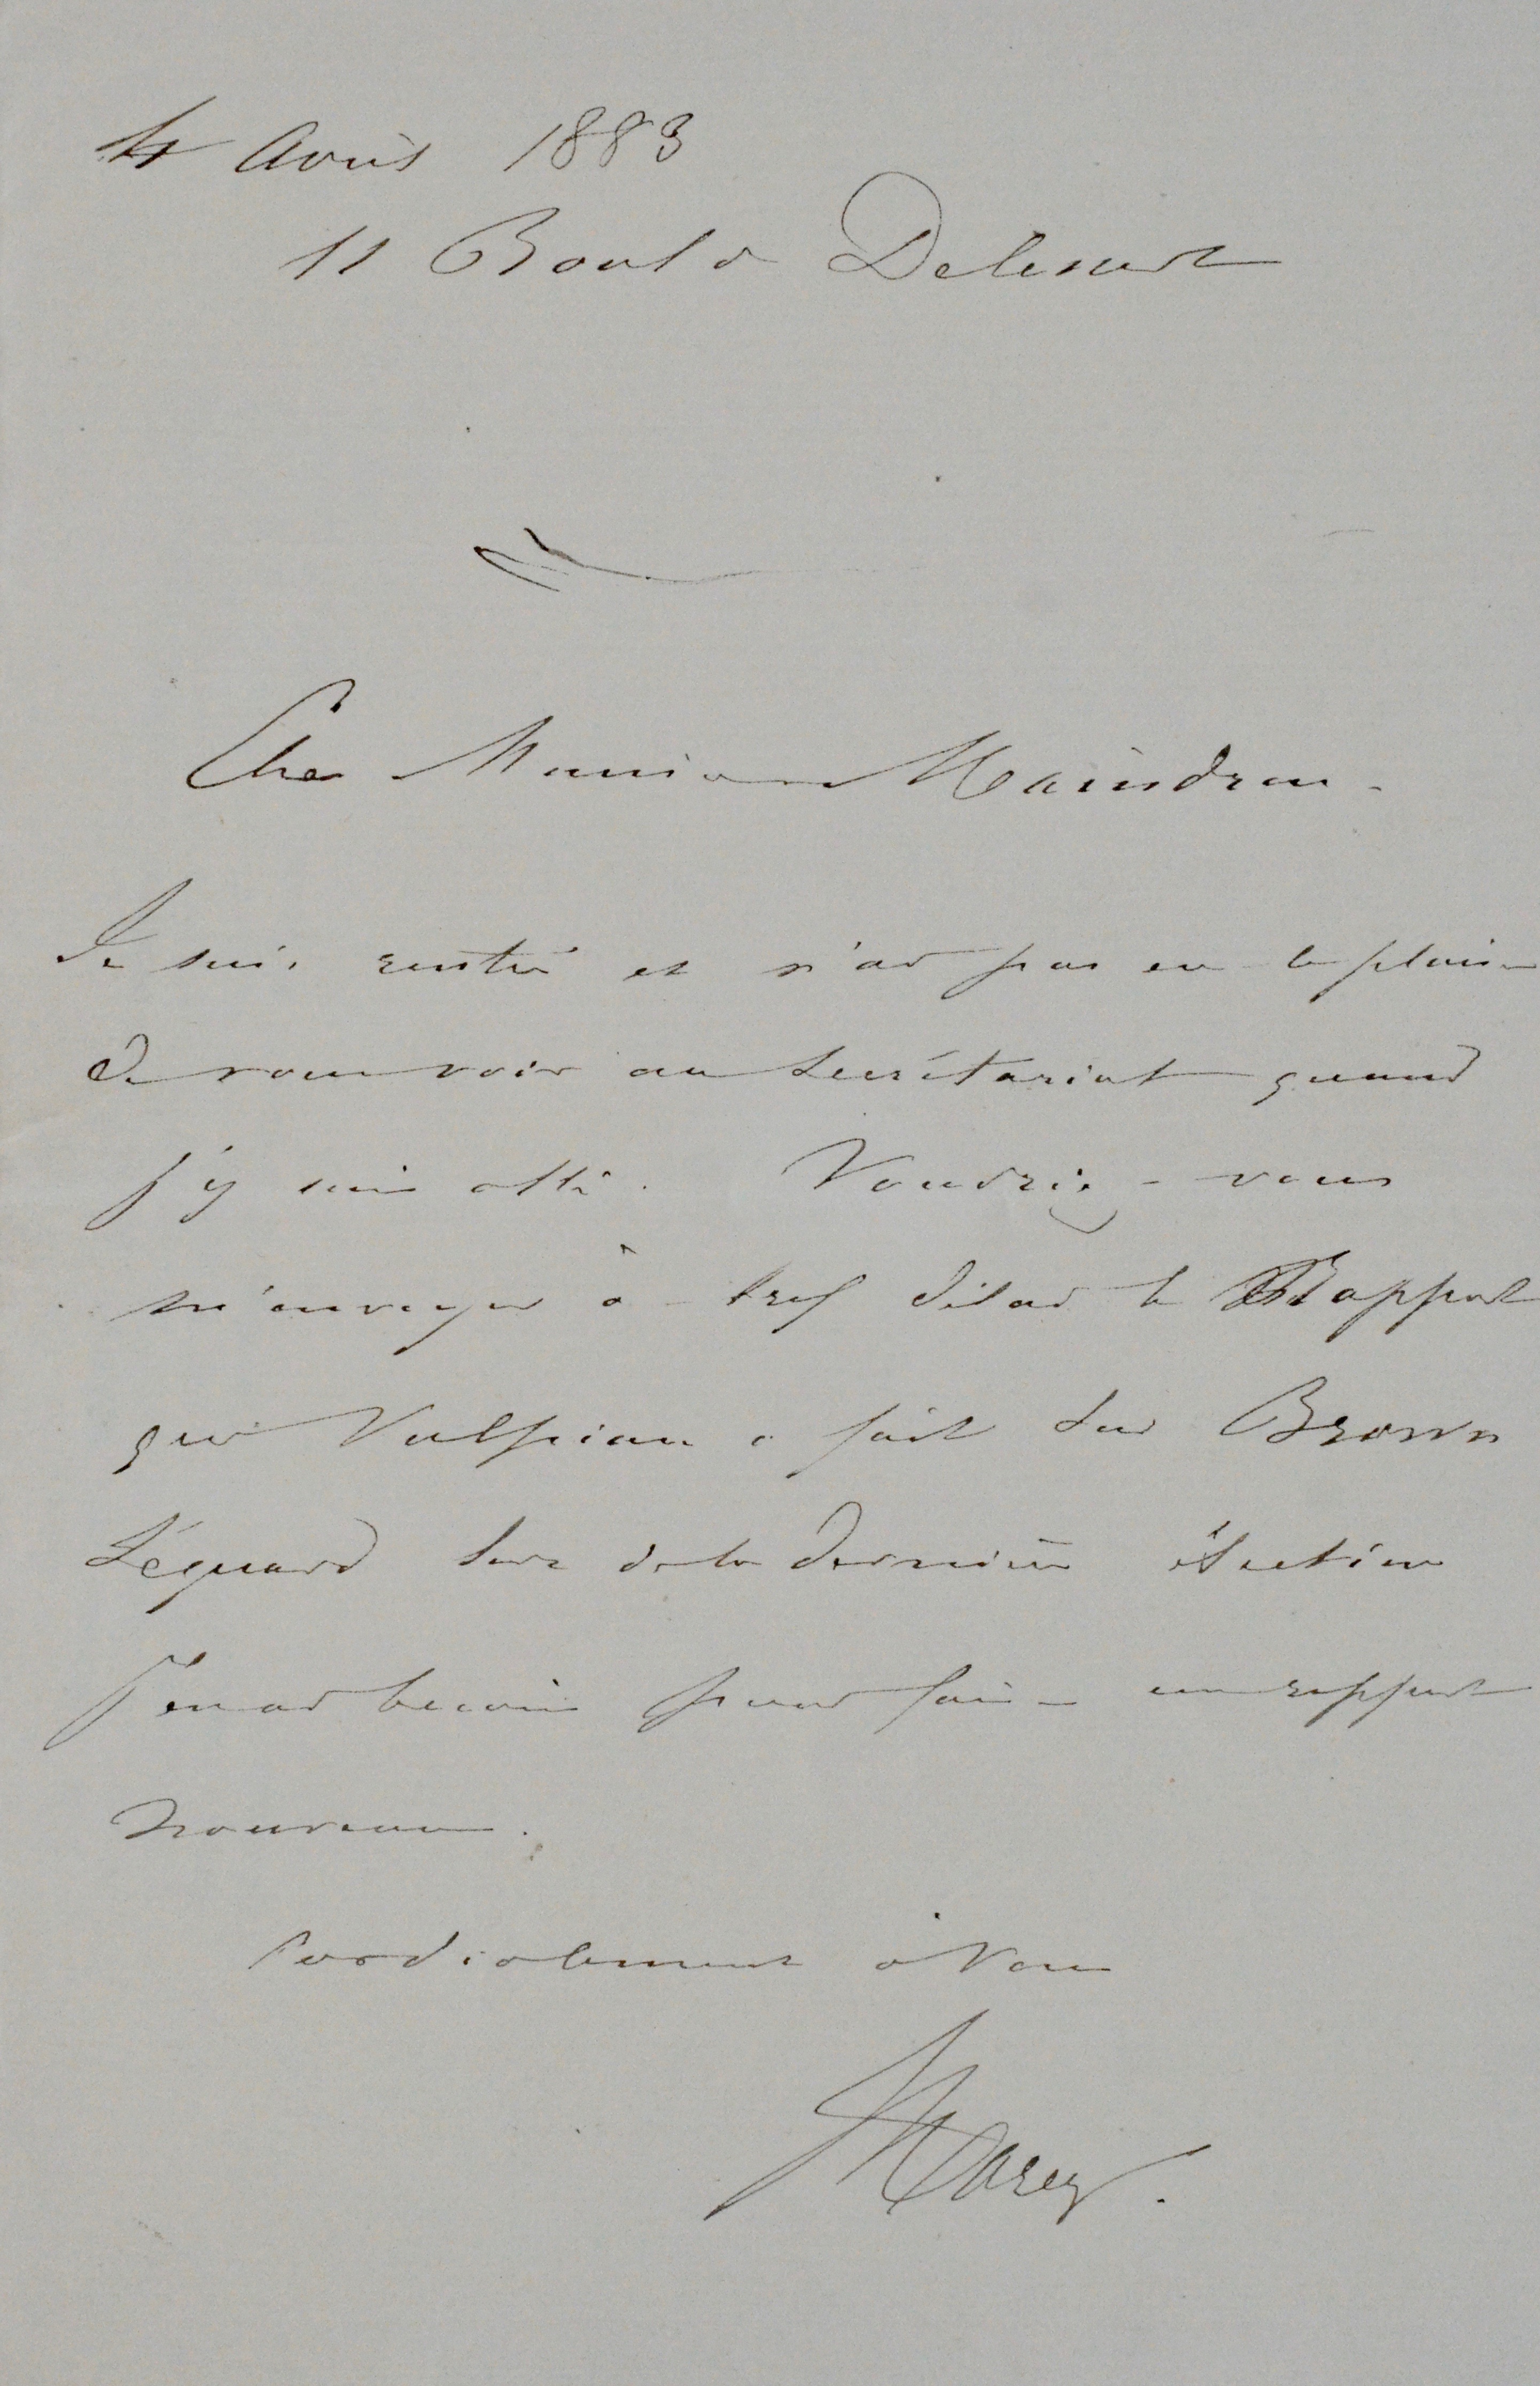 4 Avril 1883
11 Boul d Delessert
Cher Monsieur Maindron.
Je suis rentré et n'ai pas eu le plaisir
de vous voir au Secrétariat quand
j'y suis allé. Voudriez-vous
m'envoyer à bref délai le Rapport
que Vulpian a fait sur Brown
Séquard lors de la dernière élection
J'en ai besoin pour faire un rapport
nouveau.
Cordialement à vous
Marey.